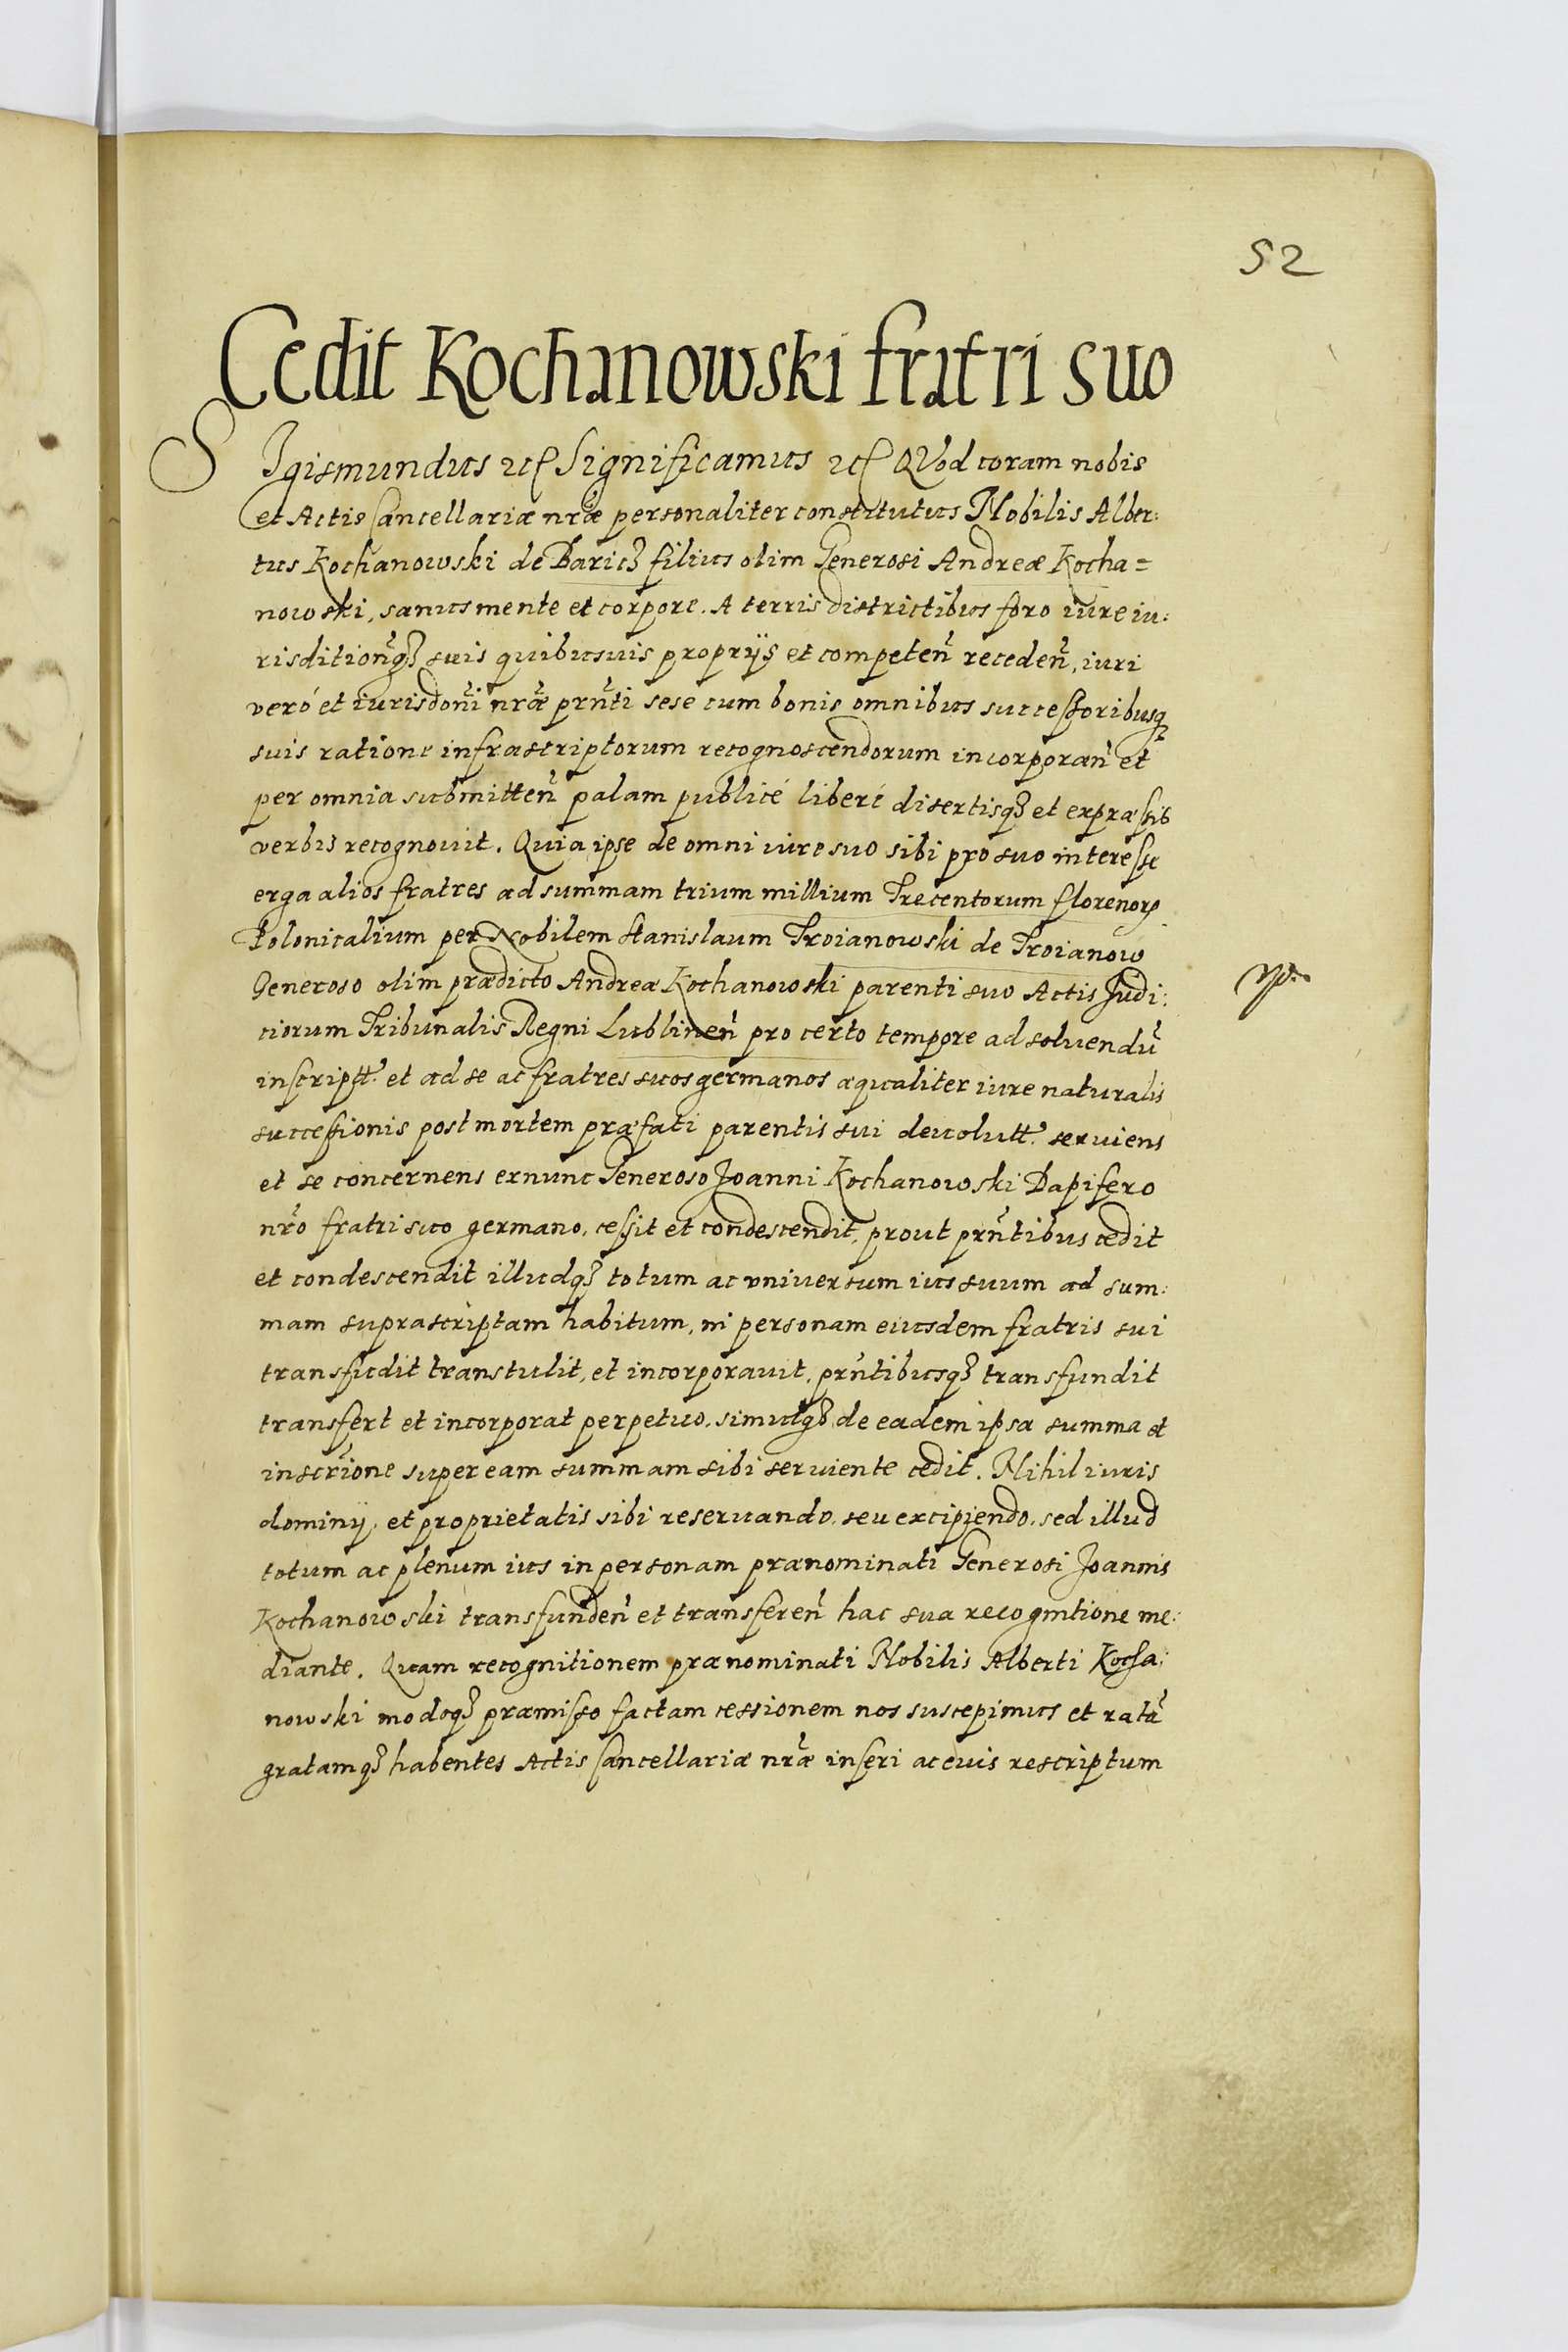 52
Cedit Kochanowski fratri suo
SJgismundus etc Significamus etc QVod coram nobis
et Actis Cancellariæ nr̃æ personaliter constitutus Nobilis Alber:
tus Kochanowski de Baricz filius olim Generosi Andreæ Kocha=
nowski, sanus mente et corpore. A terris districtibus foro iure iu:
risdition̄q3 suis quibusuis proprijs et competen̄ receden̄, iuri
veró et iurisdon̄i nr̃æ prn̄ti sese cum bonis omnibus successoribusq
suis ratione infrascriptorum recognoscendorum incorporan̄ et
per omnia submitten̄ palam publicé liberé disertisq3 et expræssis
verbis recognouit. Quia ipse de omni iure suo sibi pro suo interesse
erga alios fratres ad summam trium millium Trecentorum florenorꝝ
Polonicalium per Nobilem Stanislaum Troianowski de Troianow
Generoso olim prædicto Andreæ Kochanowski parenti suo Actis Judi:
ciorum Tribunalis Regni Lublinen̄ pro certo tempore ad soluendū
inscriptt. et ad se ac fratres suos germanos æqualiter iure naturalis
successionis post mortem præfati parentis sui deuolutt. seruiens
et se concernens exnunc Generoso Joanni Kochanowski Dapifero
nr̃o fratri suo germano, cessit et condescendit, prout prn̄tibus cedit
et condescendit illudq3 totum ac vniuersum ius suum ad sum:
mam suprascriptam habitum, in personam eiusdem fratris sui
transfudit transtulit, et incorporauit, prn̄tibusq3 transfundit
transfert et incorporat perpetuo, simulq3 de eadem ipsa summa et
inscr̃ione super eam summam sibi seruiente cedit. Nihil iuris
dominij, et proprietatis sibi reseruando, seu excipiendo, sed illud
totum ac plenum ius in personam prænominati Generosi Joannis
Kochanowski transfunden̄ et transferen̄ hac sua recognitione me:
diante. Quam recognitionem prænominati Nobilis Alberti Kocha:
nowski modoq3 præmisso factam cessionem nos suscepimus et ratā
gratamq3 habentes Actis Cancellariæ nr̃æ inseri ac euis rescriptum